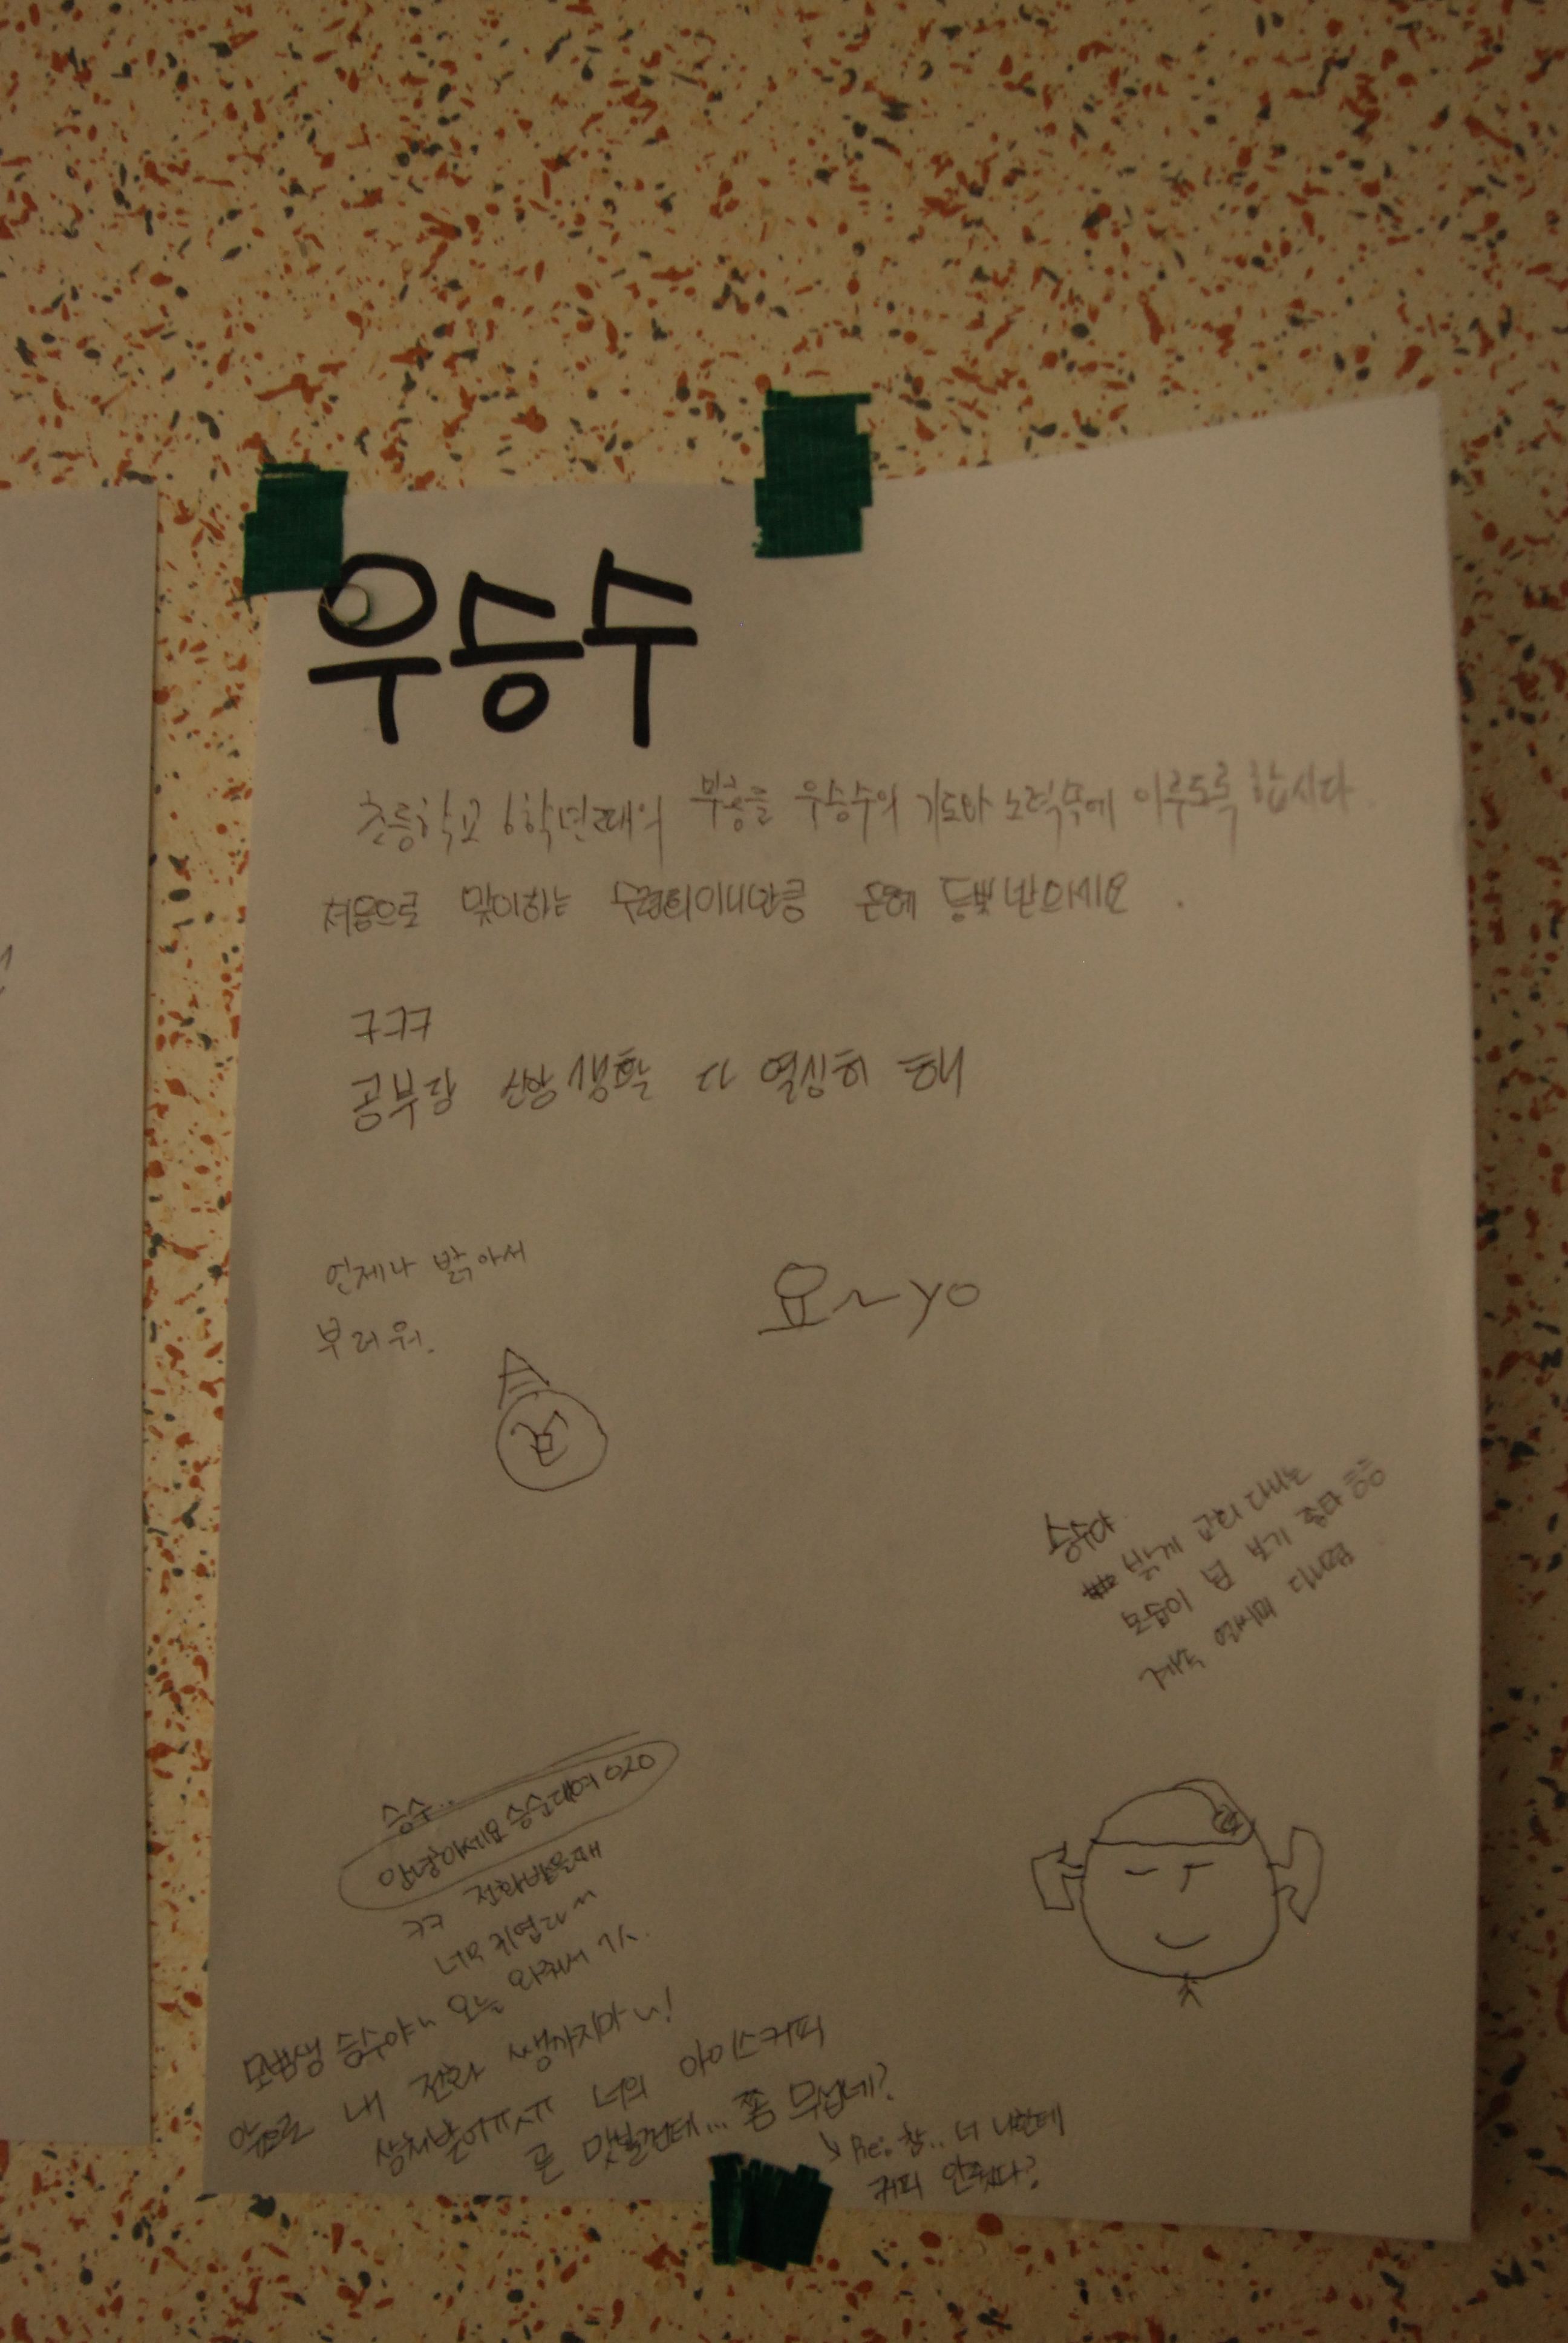 우승수
초등학교 6학년때의 부흥를 우승수의 기도와 노력속에 이루도록 합시다.
처음으로 맞이하는 수련회이니만큼 은혜 듬뿍 받으세요.
ㅋㅋㅋ
공부랑 신앙생활 다 열심히 해
언제나 밝아서
부러워.
요~yo
승수야
밝게 교회 다니는
모습이 넘 보기 좋다 ㅎㅎ
계속 열씨미 다니렴
승수..
안녕하세요 승순대여
ㅋㅋ 전화받을때
너무 귀엽다~
모범생 승수야~ 오늘 와줘서 ㄱㅅ.
앞으로 내 전화 쌩까지마~!
상처받어ㅠㅅㅠ 너의 아이스커피
곧 맛볼건테... 쫌 무섭네?
↘ Re: 참.. 너 나한테
커피 안줬다?